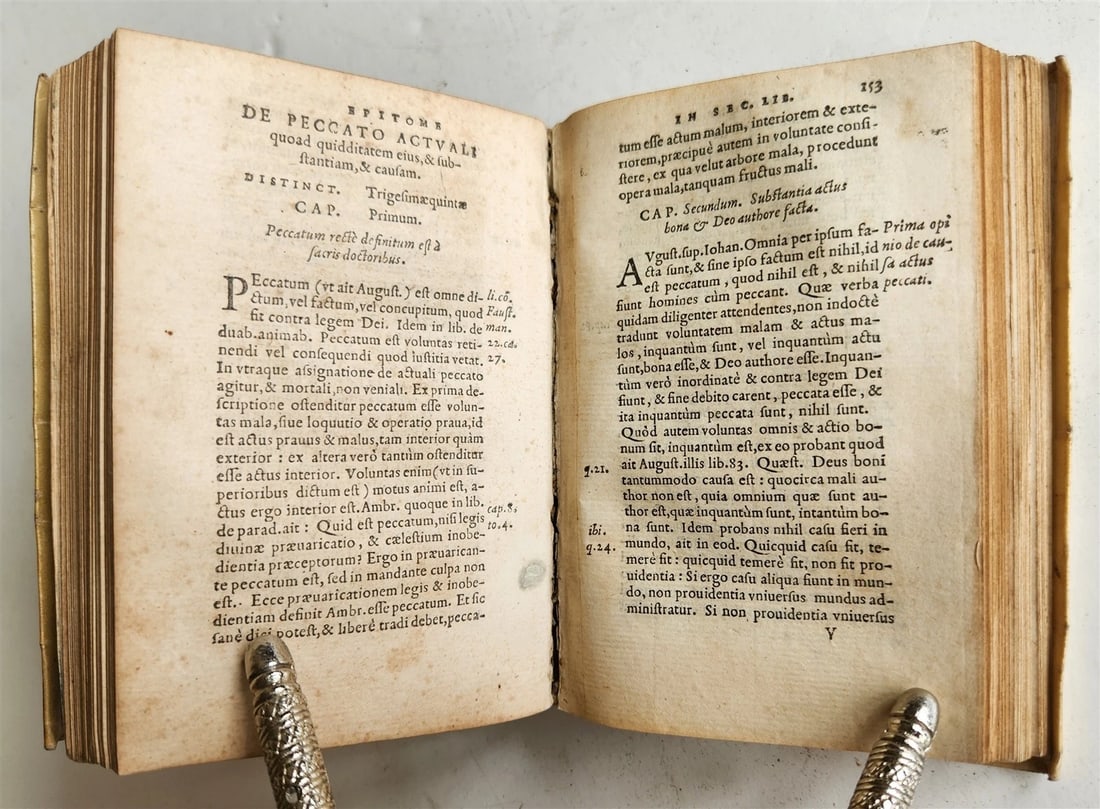 EPITOME
DE PECCATO ACTVALI
quoad quidditatem eius, & sub-
stantiam, & causam.
DISTINCT. Trigesimæquintæ
CAP. Primum.
Peccatum rectè definitum est à
sacris doctoribus.
PEccatum (vt ait August.) est omne di-
ctum, vel factum, vel concupitum, quod
fit contra legem Dei. Idem in lib. de
duab. animab. Peccatum est voluntas reti-
nendi vel consequendi quod iustitia vetat.
In vtraque assignatione de actuali peccato
agitur, & mortali, non veniali. Ex prima de-
scriptione ostenditur peccatum esse volun-
tas mala, siue loquutio & operatio praua, id
est actus prauus & malus, tam interior quàm
exterior : ex altera verò tantùm ostenditur
esse actus interior. Voluntas enim (vt in su-
perioribus dictum est) motus animi est, a-
ctus ergo interior est. Ambr. quoque in lib.
de parad. ait : Quid est peccatum, nisi legis
diuinæ præuaricatio, & cælestium inobe-
dientia præceptorum? Ergo in præuarican-
te peccatum est, sed in mandante culpa non
est. Ecce præuaricationem legis & inobe-
dientiam definit Ambr. esse peccatum. Et sic
sanè dici potest, & liberè tradi debet, pecca-
li. cõ.
Faust.
man.
22. ca.
27.
cap. 8.
to. 4.
IN SEC. LIB. 153
tum esse actum malum, interiorem & exte-
riorem, præcipuè autem in voluntate consi-
stere, ex qua velut arbore mala, procedunt
opera mala, tanquam fructus mali.
CAP. Secundum. Substantia actus
bona & Deo authore facta.
AVgust. sup. Iohan. Omnia per ipsum fa-
cta sunt, & sine ipso factum est nihil, id
est peccatum, quod nihil est, & nihil
fiunt homines cùm peccant. Quæ verba
quidam diligenter attendentes, non indoctè
tradunt voluntatem malam & actus ma-
los, inquantum sunt, vel inquantum actu
sunt, bona esse, & Deo authore esse. Inquan-
tùm verò inordinatè & contra legem Dei
fiunt, & fine debito carent, peccata esse, &
ita inquantùm peccata sunt, nihil sunt.
Quòd autem voluntas omnis & actio bo-
num sit, inquantùm est, ex eo probant quod
ait August. illis lib. 83. Quæst. Deus boni
tantummodo causa est : quocirca mali au-
thor non est, quia omnium quæ sunt au-
thor est, quæ inquantùm sunt, intantùm bo-
na sunt. Idem probans nihil casu fieri in
mundo, ait in eod. Quicquid casu fit, te-
merè fit : quicquid temerè fit, non fit pro-
uidentia : Si ergo casu aliqua fiunt in mun-
do, non prouidentia vniuersus mundus ad-
ministratur. Si non prouidentia vniuersus
Y
Prima opi
nio de cau-
sa actus
peccati.
q. 21.
ibi.
q. 24.